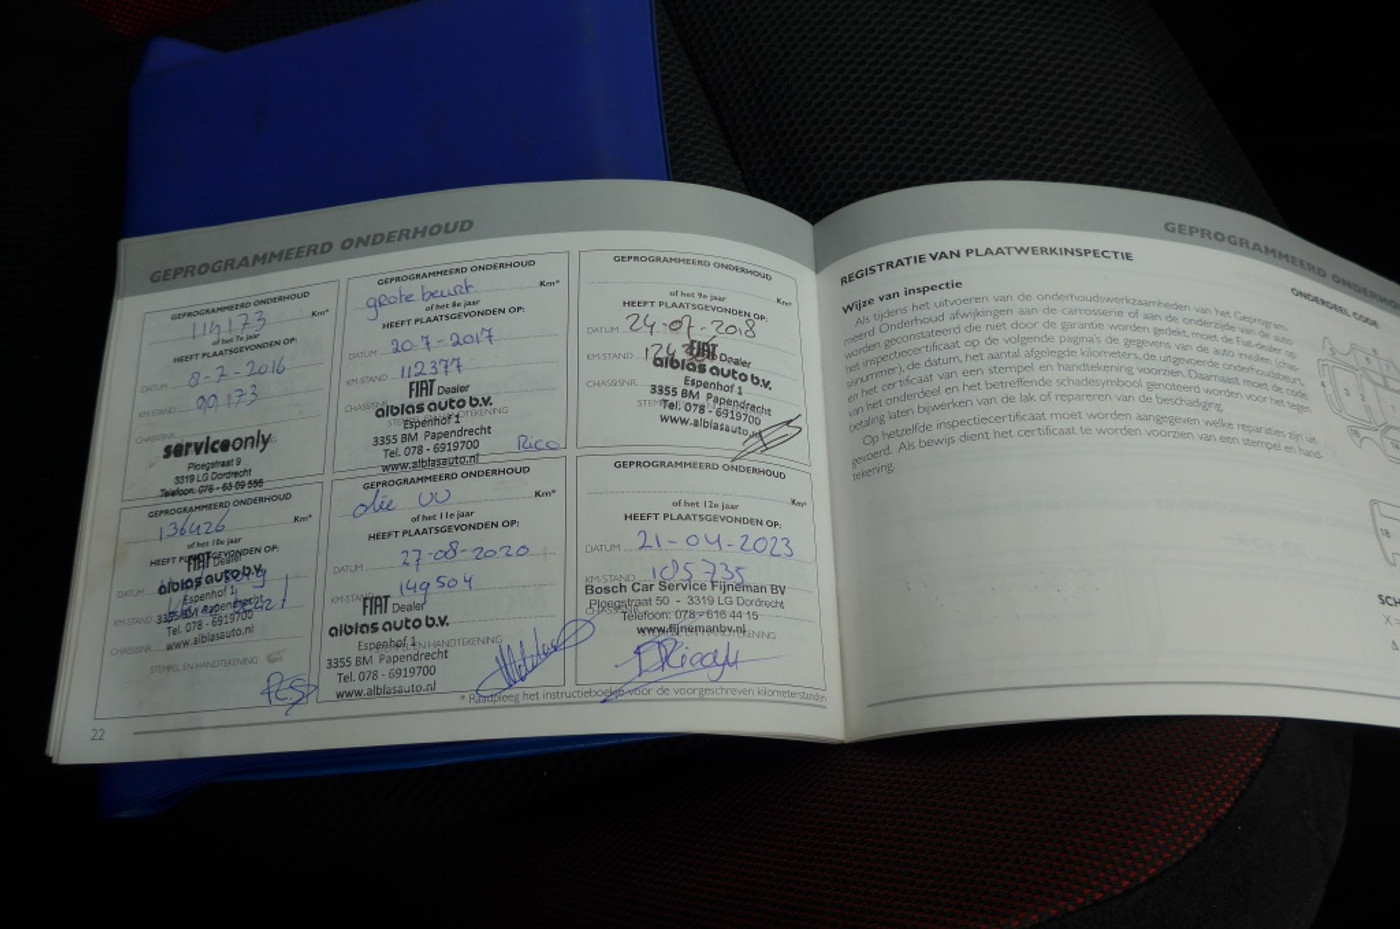 GEPROGRAMMEERD ONDERHOUD
GEPROGRAMMEERD ONDERHOUD
114173 Km*
of het 7e jaar
HEEFT PLAATSGEVONDEN OP:
DATUM 8-7-2016
KM-STAND 99173
CHASSISNR.
serviceonly
Ploegstraat 9
3319 LG Dordrecht
Telefoon: 078 - 63 09 556
GEPROGRAMMEERD ONDERHOUD
grote beurt Km*
of het 8e jaar
HEEFT PLAATSGEVONDEN OP:
DATUM 20-7-2017
KM-STAND 112377
CHASSISNR.
FIAT Dealer
alblas auto b.v.
STEMPEL EN HANDTEKENING
Espenhof 1
3355 BM Papendrecht
Tel. 078 - 6919700
www.alblasauto.nl
Rico
GEPROGRAMMEERD ONDERHOUD
of het 9e jaar Km*
HEEFT PLAATSGEVONDEN OP:
DATUM 24-07-2018
KM-STAND
FIAT Dealer
alblas auto b.v.
CHASSISNR.
Espenhof 1
3355 BM Papendrecht
Tel. 078 - 6919700
www.alblasauto.nl
GEPROGRAMMEERD ONDERHOUD
136426 Km*
of het 10e jaar
HEEFT PLAATSGEVONDEN OP:
FIAT Dealer
alblas auto b.v.
DATUM
Espenhof 1
KM-STAND
3355 BM Papendrecht
Tel. 078 - 6919700
CHASSISNR.
www.alblasauto.nl
STEMPEL EN HANDTEKENING
GEPROGRAMMEERD ONDERHOUD
olie Km*
of het 11e jaar
HEEFT PLAATSGEVONDEN OP:
DATUM 27-08-2020
KM-STAND 149504
FIAT Dealer
alblas auto b.v.
Espenhof 1
STEMPEL EN HANDTEKENING
3355 BM Papendrecht
Tel. 078 - 6919700
www.alblasauto.nl
GEPROGRAMMEERD ONDERHOUD
Km*
of het 12e jaar
HEEFT PLAATSGEVONDEN OP:
DATUM 21-04-2023
KM-STAND 185735
Bosch Car Service Fijneman BV
Ploegstraat 50 - 3319 LG Dordrecht
CHASSISNR.
Telefoon: 078 - 616 44 15
www.fijnemanbv.nl
STEMPEL EN HANDTEKENING
* Raadpleeg het instructieboekje voor de voorgeschreven kilometerstanden
22
GEPROGRAMMEERD ONDERHOUD
REGISTRATIE VAN PLAATWERKINSPECTIE
Wijze van inspectie
Als tijdens het uitvoeren van de onderhoudswerkzaamheden van het Geprogram-
meerd Onderhoud afwijkingen aan de carrosserie of aan de onderzijde van de auto
worden geconstateerd die niet door de garantie worden gedekt, moet de Fiat-dealer op
het inspectiecertificaat op de volgende pagina's de gegevens van de auto invullen (chas-
sisnummer), de datum, het aantal afgelegde kilometers, de uitgevoerde onderhoudsbeurt
en het certificaat van een stempel en handtekening voorzien. Daarnaast moet de code
van het onderdeel en het betreffende schadesymbool genoteerd worden voor het tegen
betaling laten bijwerken van de lak of repareren van de beschadiging.
Op hetzelfde inspectiecertificaat moet worden aangegeven welke reparaties zijn uit-
gevoerd. Als bewijs dient het certificaat te worden voorzien van een stempel en hand-
tekening.
ONDERDEEL CODE
18
SCH
X =